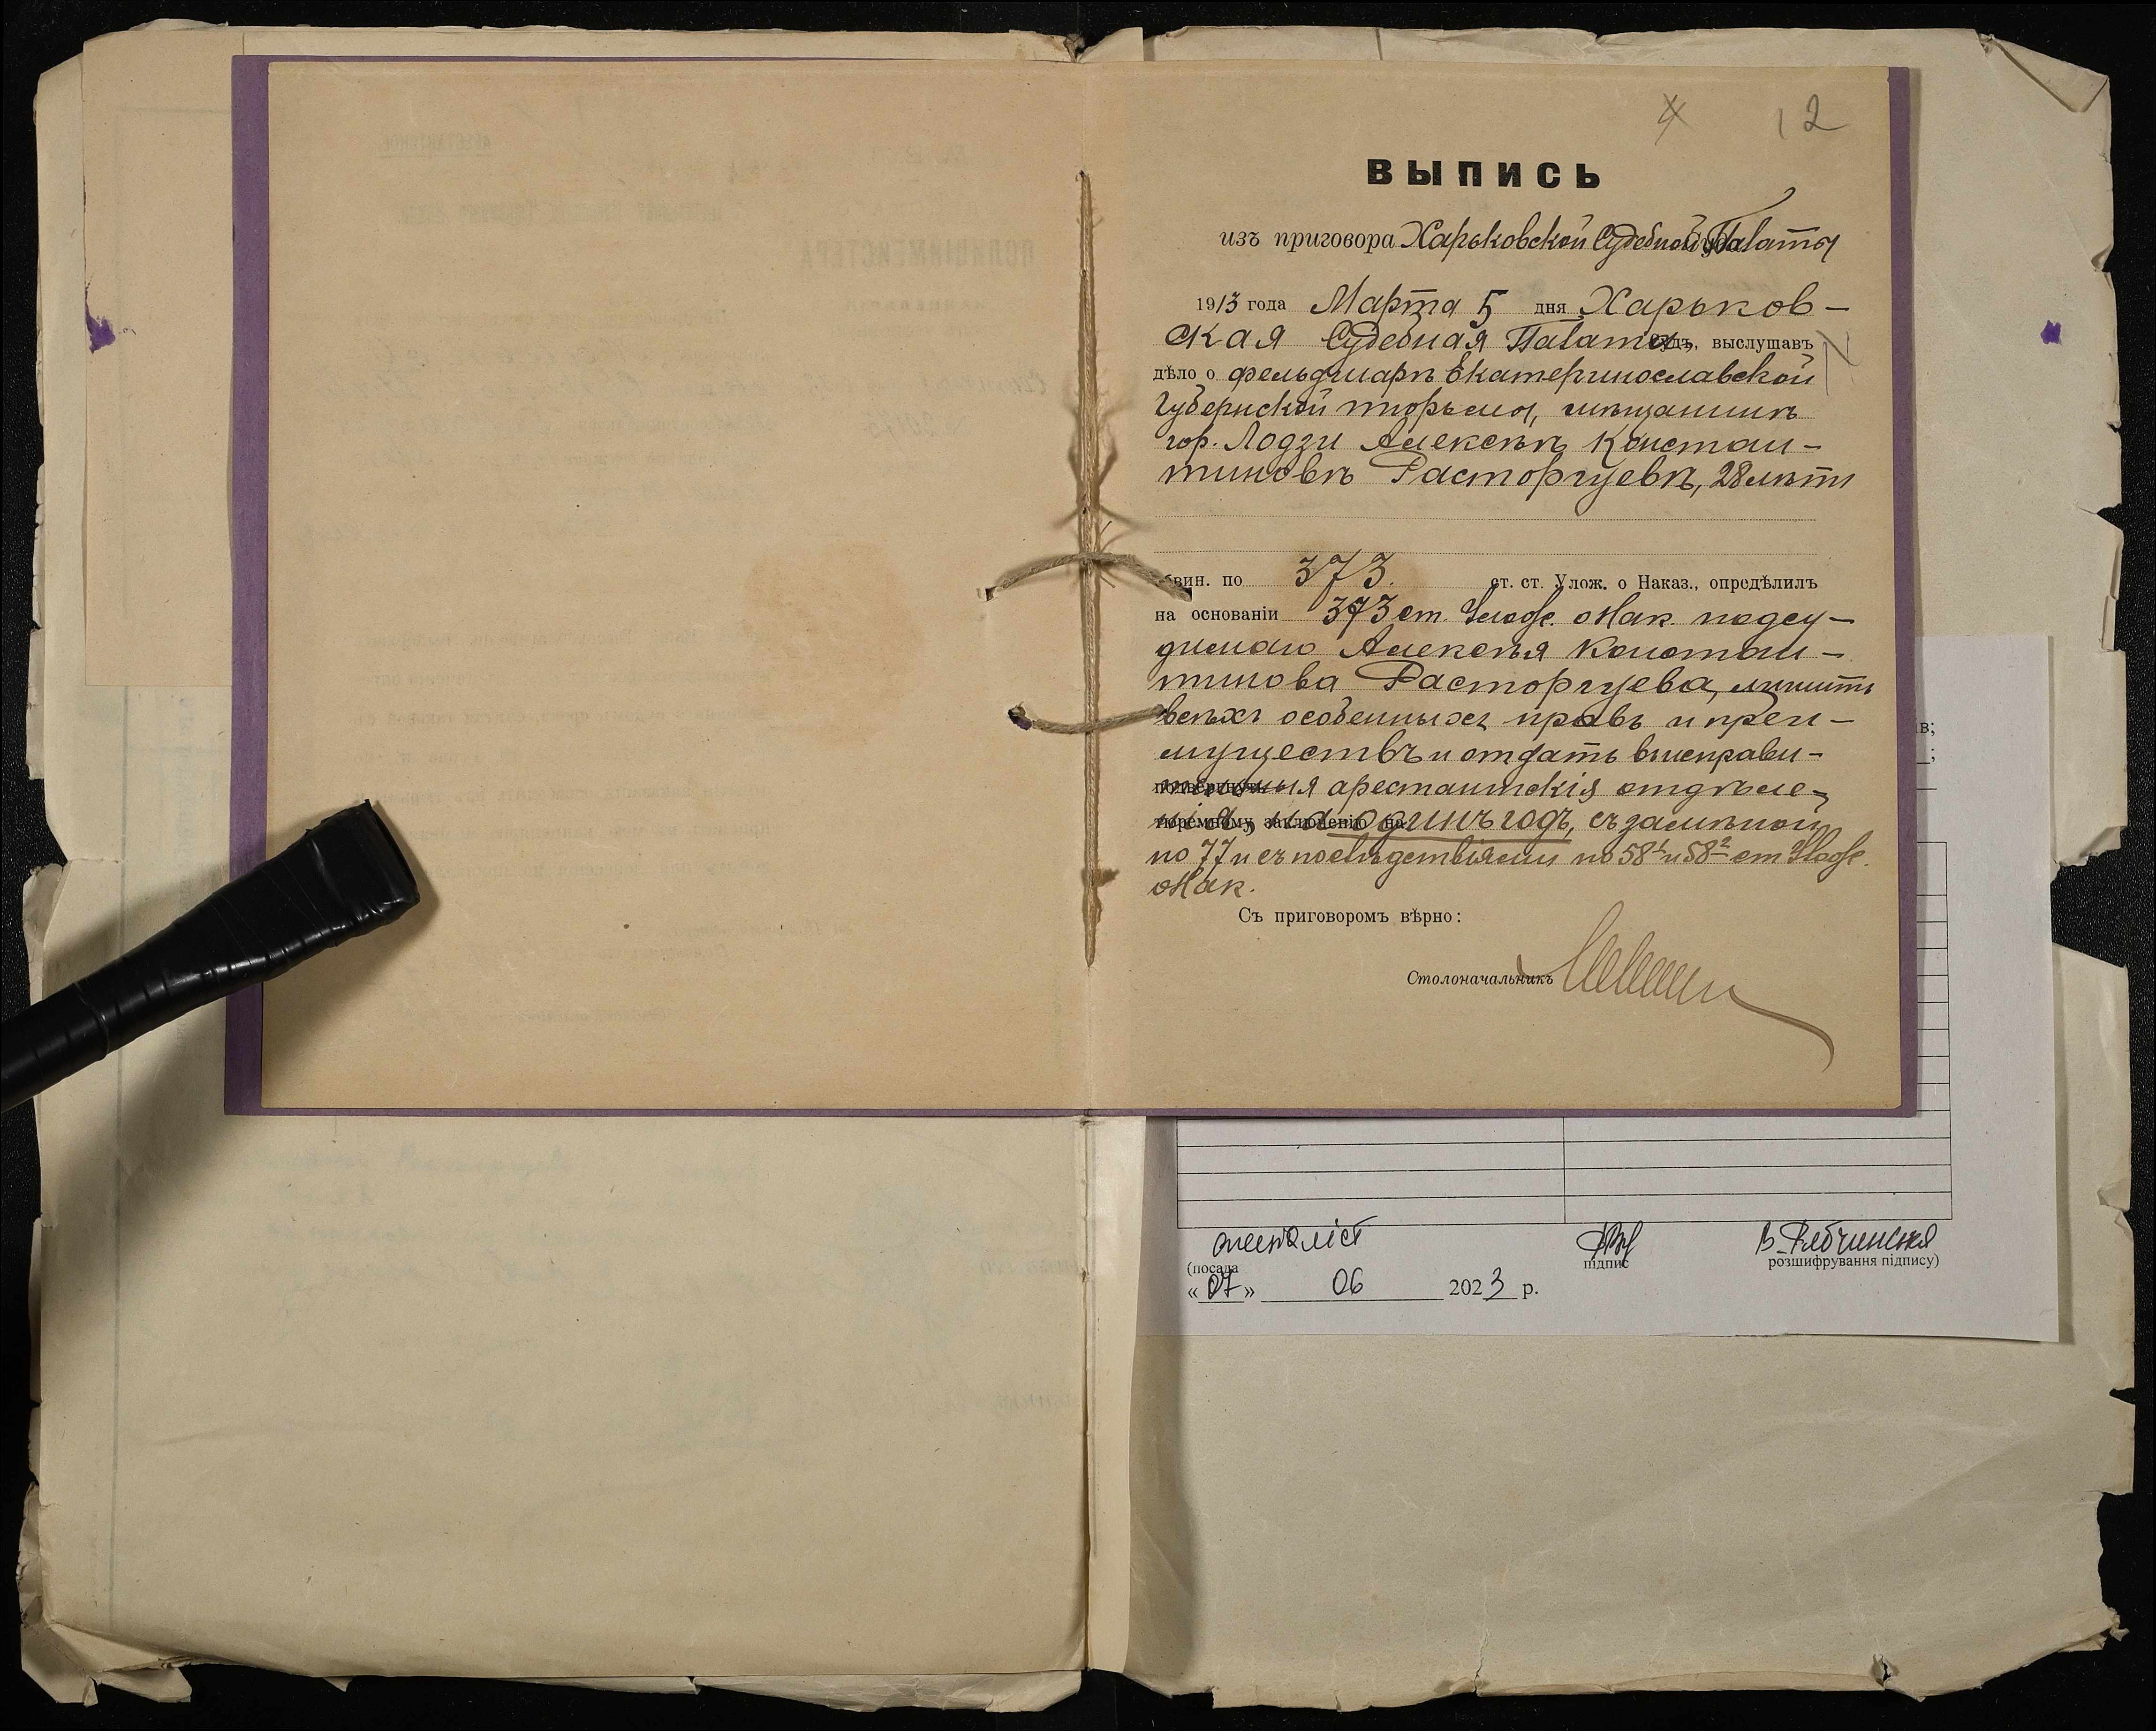 12
ВЫПИСЬ
изъ приговора Харьковской Судебной Палаты
1913 года Марта 5 дня Харьков-
ская Судебная Палата судъ, выслушавъ
дѣло о фельдшарѣ Екатеринославской
Губернской тюрьмы, мѣщанинѣ
гор. Лодзи Алексѣѣ Констан-
тиновѣ Расторгуевѣ, 28 лѣтъ
обвин. по 373. ст. ст. Улож. о Наказ., опредѣлилъ
на основаніи 373 ст. Улож. о Нак. подсу-
димаго Алексѣя Констан-
тинова Расторгуева, лишить
всѣхъ особенныхъ правъ и преи-
муществъ и отдать въ исправи-
тельныя арестантскія отдѣле-
нія, на одинъ годъ, съ замѣной
по 77 и съ послѣдствіями по 58¹ и 58² ст. Улож.
о Нак.
Съ приговоромъ вѣрно:
Столоначальникъ
в;
;
спеціаліст
(посада
підпис
розшифрування підпису)
«07» 06 2023 р.